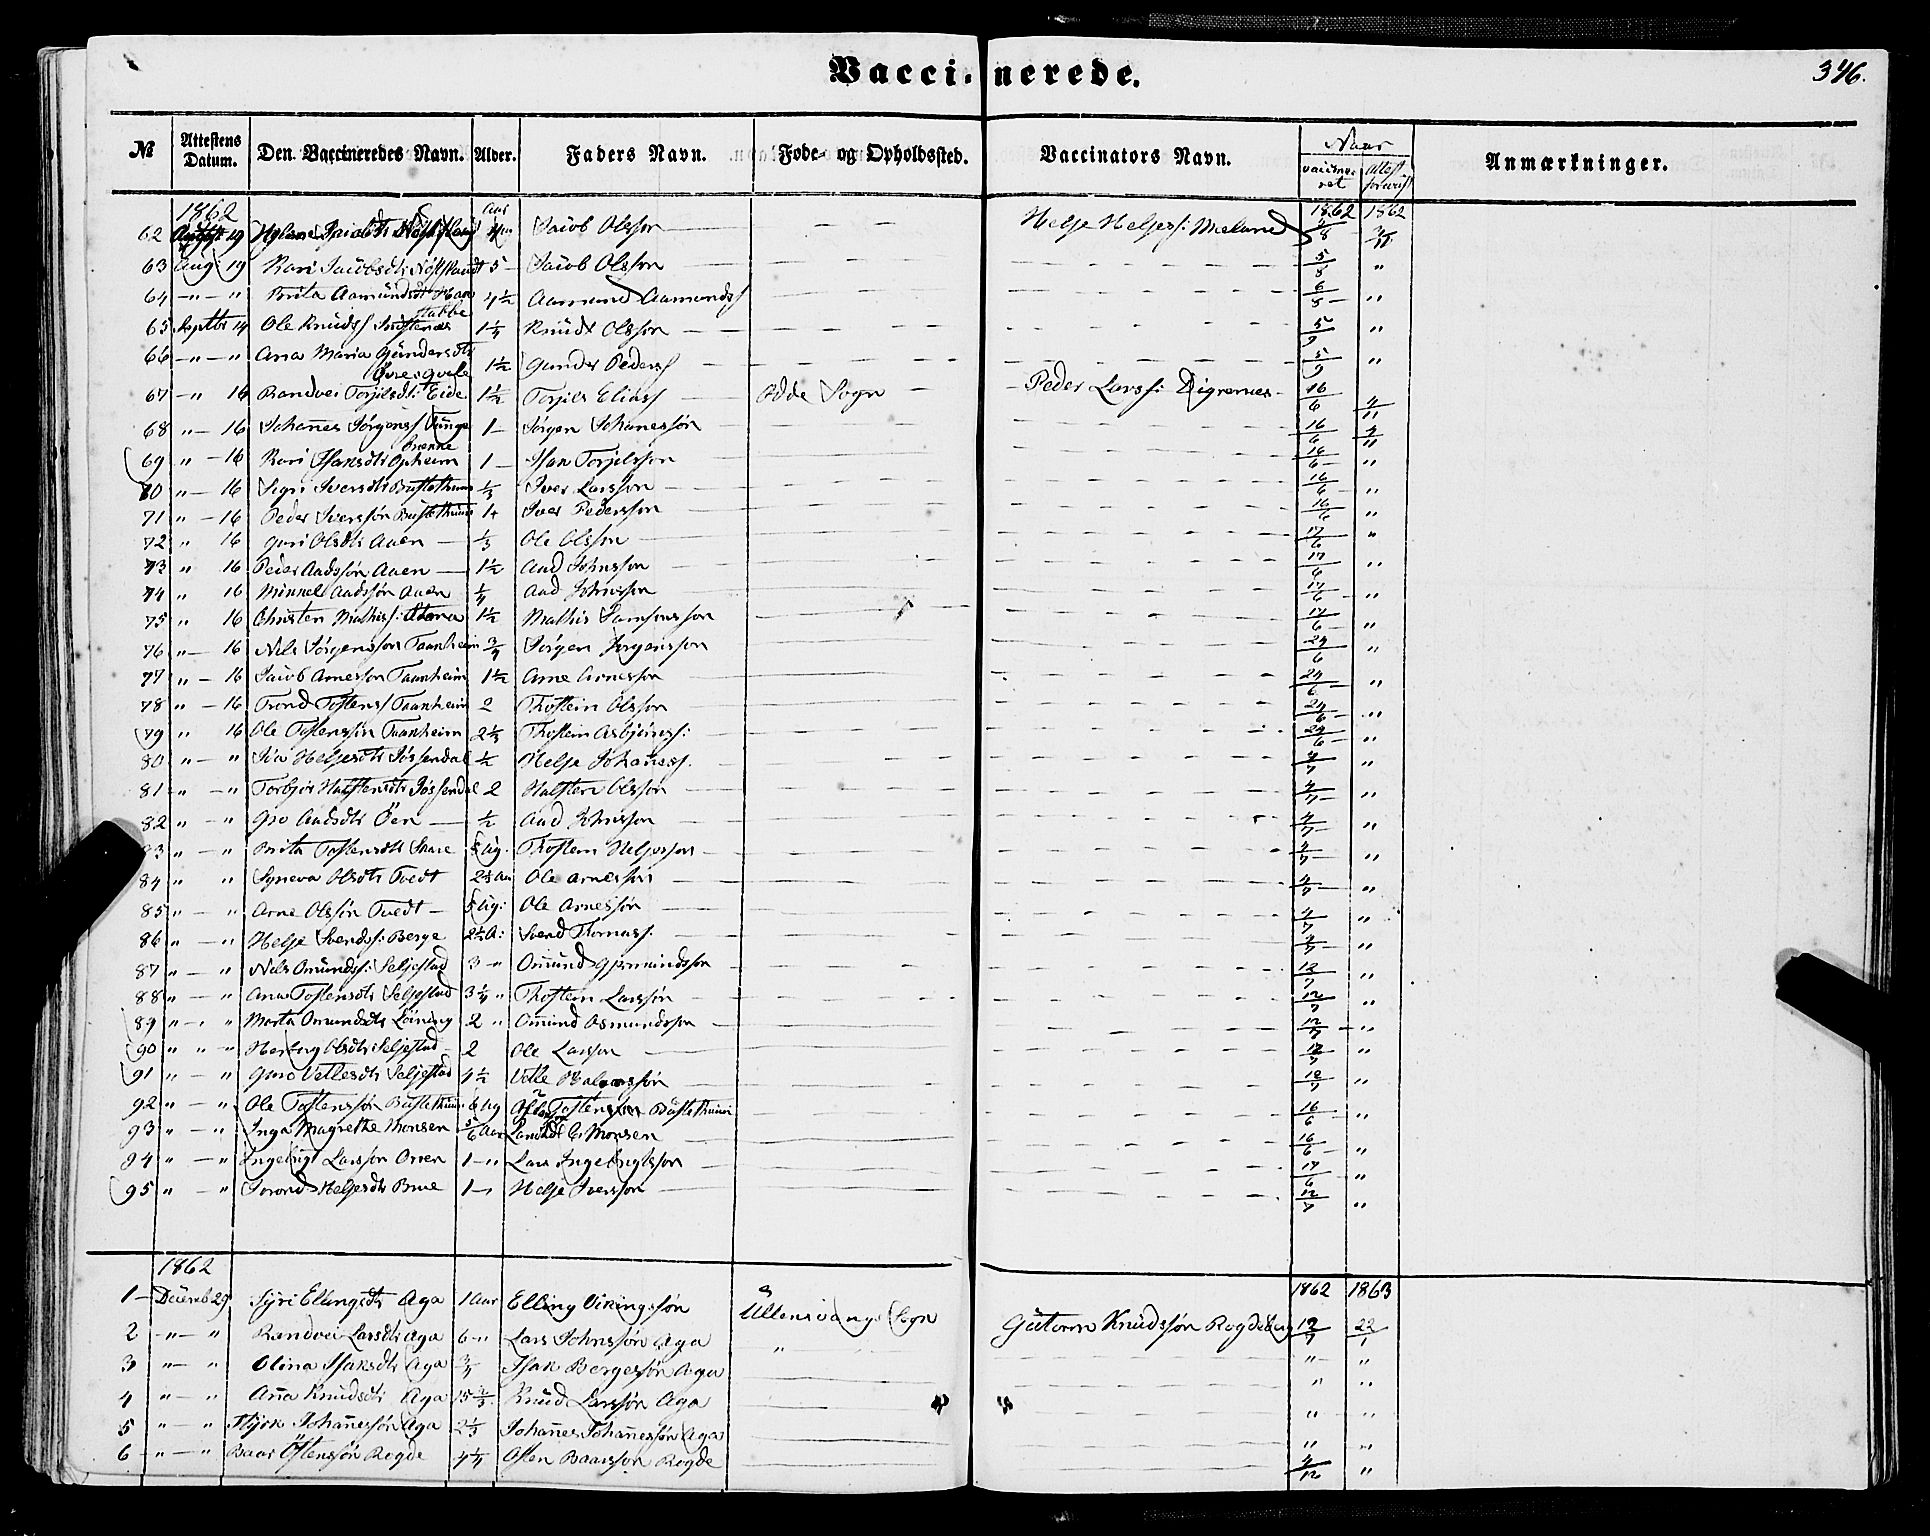 Vaccinerede.
346.
№ Attestens Datum. Den Vaccineredes Navn. Alder. Faders Navn. Føde- og Opholdssted. Vaccinators Navn. Naar vaccineret Attest Anmærkninger.
1862 Aar 1862 1862
62 August 19 Jacob Olsson — Helje Heljess: Mæland /8
63 Aug: 19 Kari Jacobsdtr 5 — Jacob Olsson — 5/8 "
64 — " — " Brita Aamundsdtr 4½ Aamund Aamundss 6/8 "
65 Septbr 14 Ole Knudss 1¼ Knud Olsson — 5/9 "
66 — " — " Anna Maria Gundersdtr 1½ Gunder Pederss 5/9 "
67 — " 16 Randvei Torjilsdtr: Eide 1½ Torjils Eliass Odde Sogn Peder Larss: Digrenes 16/6 4/11
68 " — 16 Johannes Jørgenss Tunge 1 — Jørgen Johanessøn 16/6 4/11
Brenne
69 " — 16 Kari Isaksdtr Opheim 1 — Isak Torjilsson 16/6 "
70 " — 16 Sigri Iversdtr Bustethuun ⅓ Iver Larsson 16/6 "
71 " — 16 Peder Iverssøn Bustethuun 1 Iver Pedersson 16/6 "
72 " 16 Guri Olsdtr Aaen — ⅓ Ole Olsson 17/6 "
73 " 16 Peder Aadssøn Aaen — 1½ Aad Johnsson 17/6 "
74 " 16 Mikkel Aadssøn Aaen ¼ Aad Johnsson 17/6 "
75 " 16 Christen Mathiss: 1½ Mathis Samsonsson 17/6 "
76 " — 16 Nils Jørgensson Taanheim ¾ Jørgen Jørgensson 24/6 "
77 " — 16 Jacob Arnesson Taanheim 1½ Arne Arnesson 24/6 "
78 " — 16 Trond Tostenss Taanheim 2 Thostein Olsson 24/6 "
79 " 16 Ole Tostenssøn Taanheim 2⅓ Thostein Asbjørnss: 24/6 "
80 " — " Heljesdtr Jøssendal ½ Helje Johannss. 4/7 "
81 " — " Torbjør Halstensdtr Jøssendal 2 Halsten Olsson 4/7 "
82 " — " Gro Aadsdtr Øen — ½ Aad Johnsson 4/7 "
83 " — " Brita Tostensdtr Skare 5 Ug. Thostein Heljesson 4/7 "
84 " " Synneva Olsdtr Tvedt Ole Arnesson 4/7 "
85 " — " Arne Olssøn Tvedt — 5 Ug: Ole Arnessøn 4/7 "
86 " — " Helje Svendss: Berge 2½ A: Svend Thomass: 4/7 "
87 " — " Nils Omundss: Seljestad 3 — " Omund Gjermundsson 12/7 "
88 " — " Anna Tostensdtr Seljestad 3¼ " Thostein Larssøn 12/7 "
89 " — " Marta Omundsdtr Løining 2 " Omund Asmundsson 12/7 "
90 " " — " Herborg Olsdtr Seljestad 2 Ole Larsson 12/7 "
91 " — " Guro Vetlesdtr Seljestad 4½ Vetle 12/7 "
92 " — " Ole Tostenssøn Bustethuun 6 Ug Tostenssøn Bustethuun 16/6 "
93 " — " Inga Magrethe Monsen 5/6 Aar Monsen 16/6 "
94 " — " Ingebrigt Larsson 1 — " Lars Ingebrigtsson 17/6 "
95 " — " Heljesdtr Brue 1 — " Helje Iversson 12/7 "
1862 1862 1863
1 — Decemb 29 Syri Ellingsdtr Aga 1 Aar Elling Vikingssøn Ullensvangs Sogn
2 — " — " Randvei Larsdtr Aga 6 — " Lars Johnssøn Aga " Gutorm Knudssøn Rogdeberg 12/ 22/1
3 " — " Olina Isaksdtr Aga ¾ Isak Bergessøn Aga " "
4 " — " Anna Knudsdtr Aga 15 Knud Larssøn Aga " " " "
5 " — " Johannessøn Aga 2⅓ Johannes Johannessøn Aga " "
6 " — " Baar Østenssøn Rogde 4¼ Østen Baarssøn Rogde 4/12 "